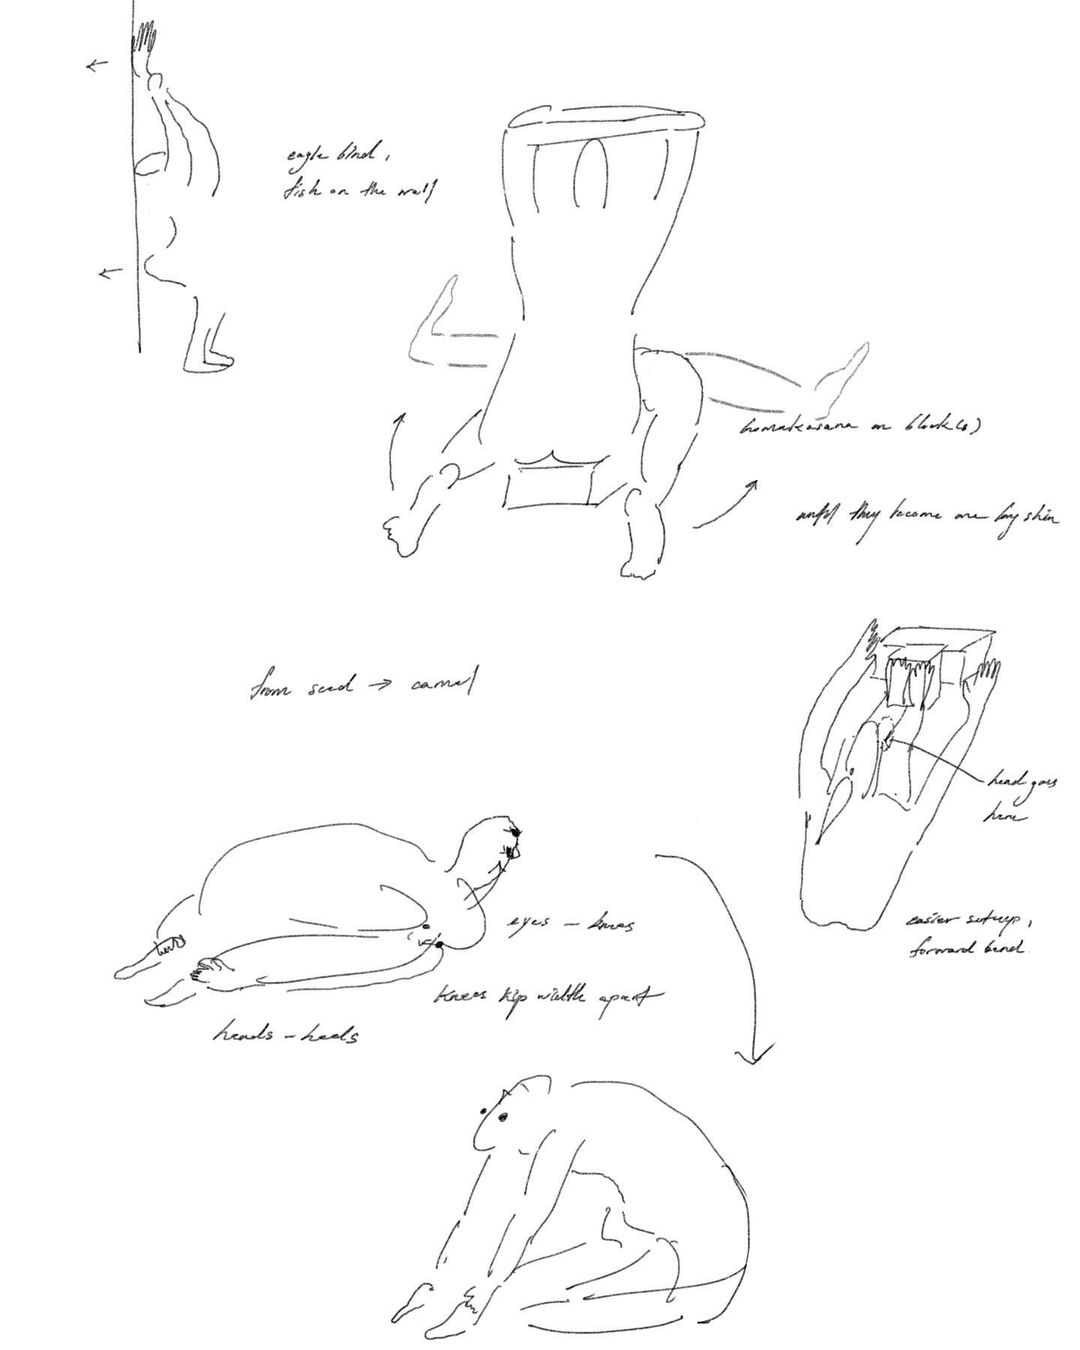 eagle bind,
fish on the wall
on block(s)
until they become one long shin
from seed → camel
head goes
here
easier setup,
forward bend
eyes – knees
Knees hip width apart
hands – heels